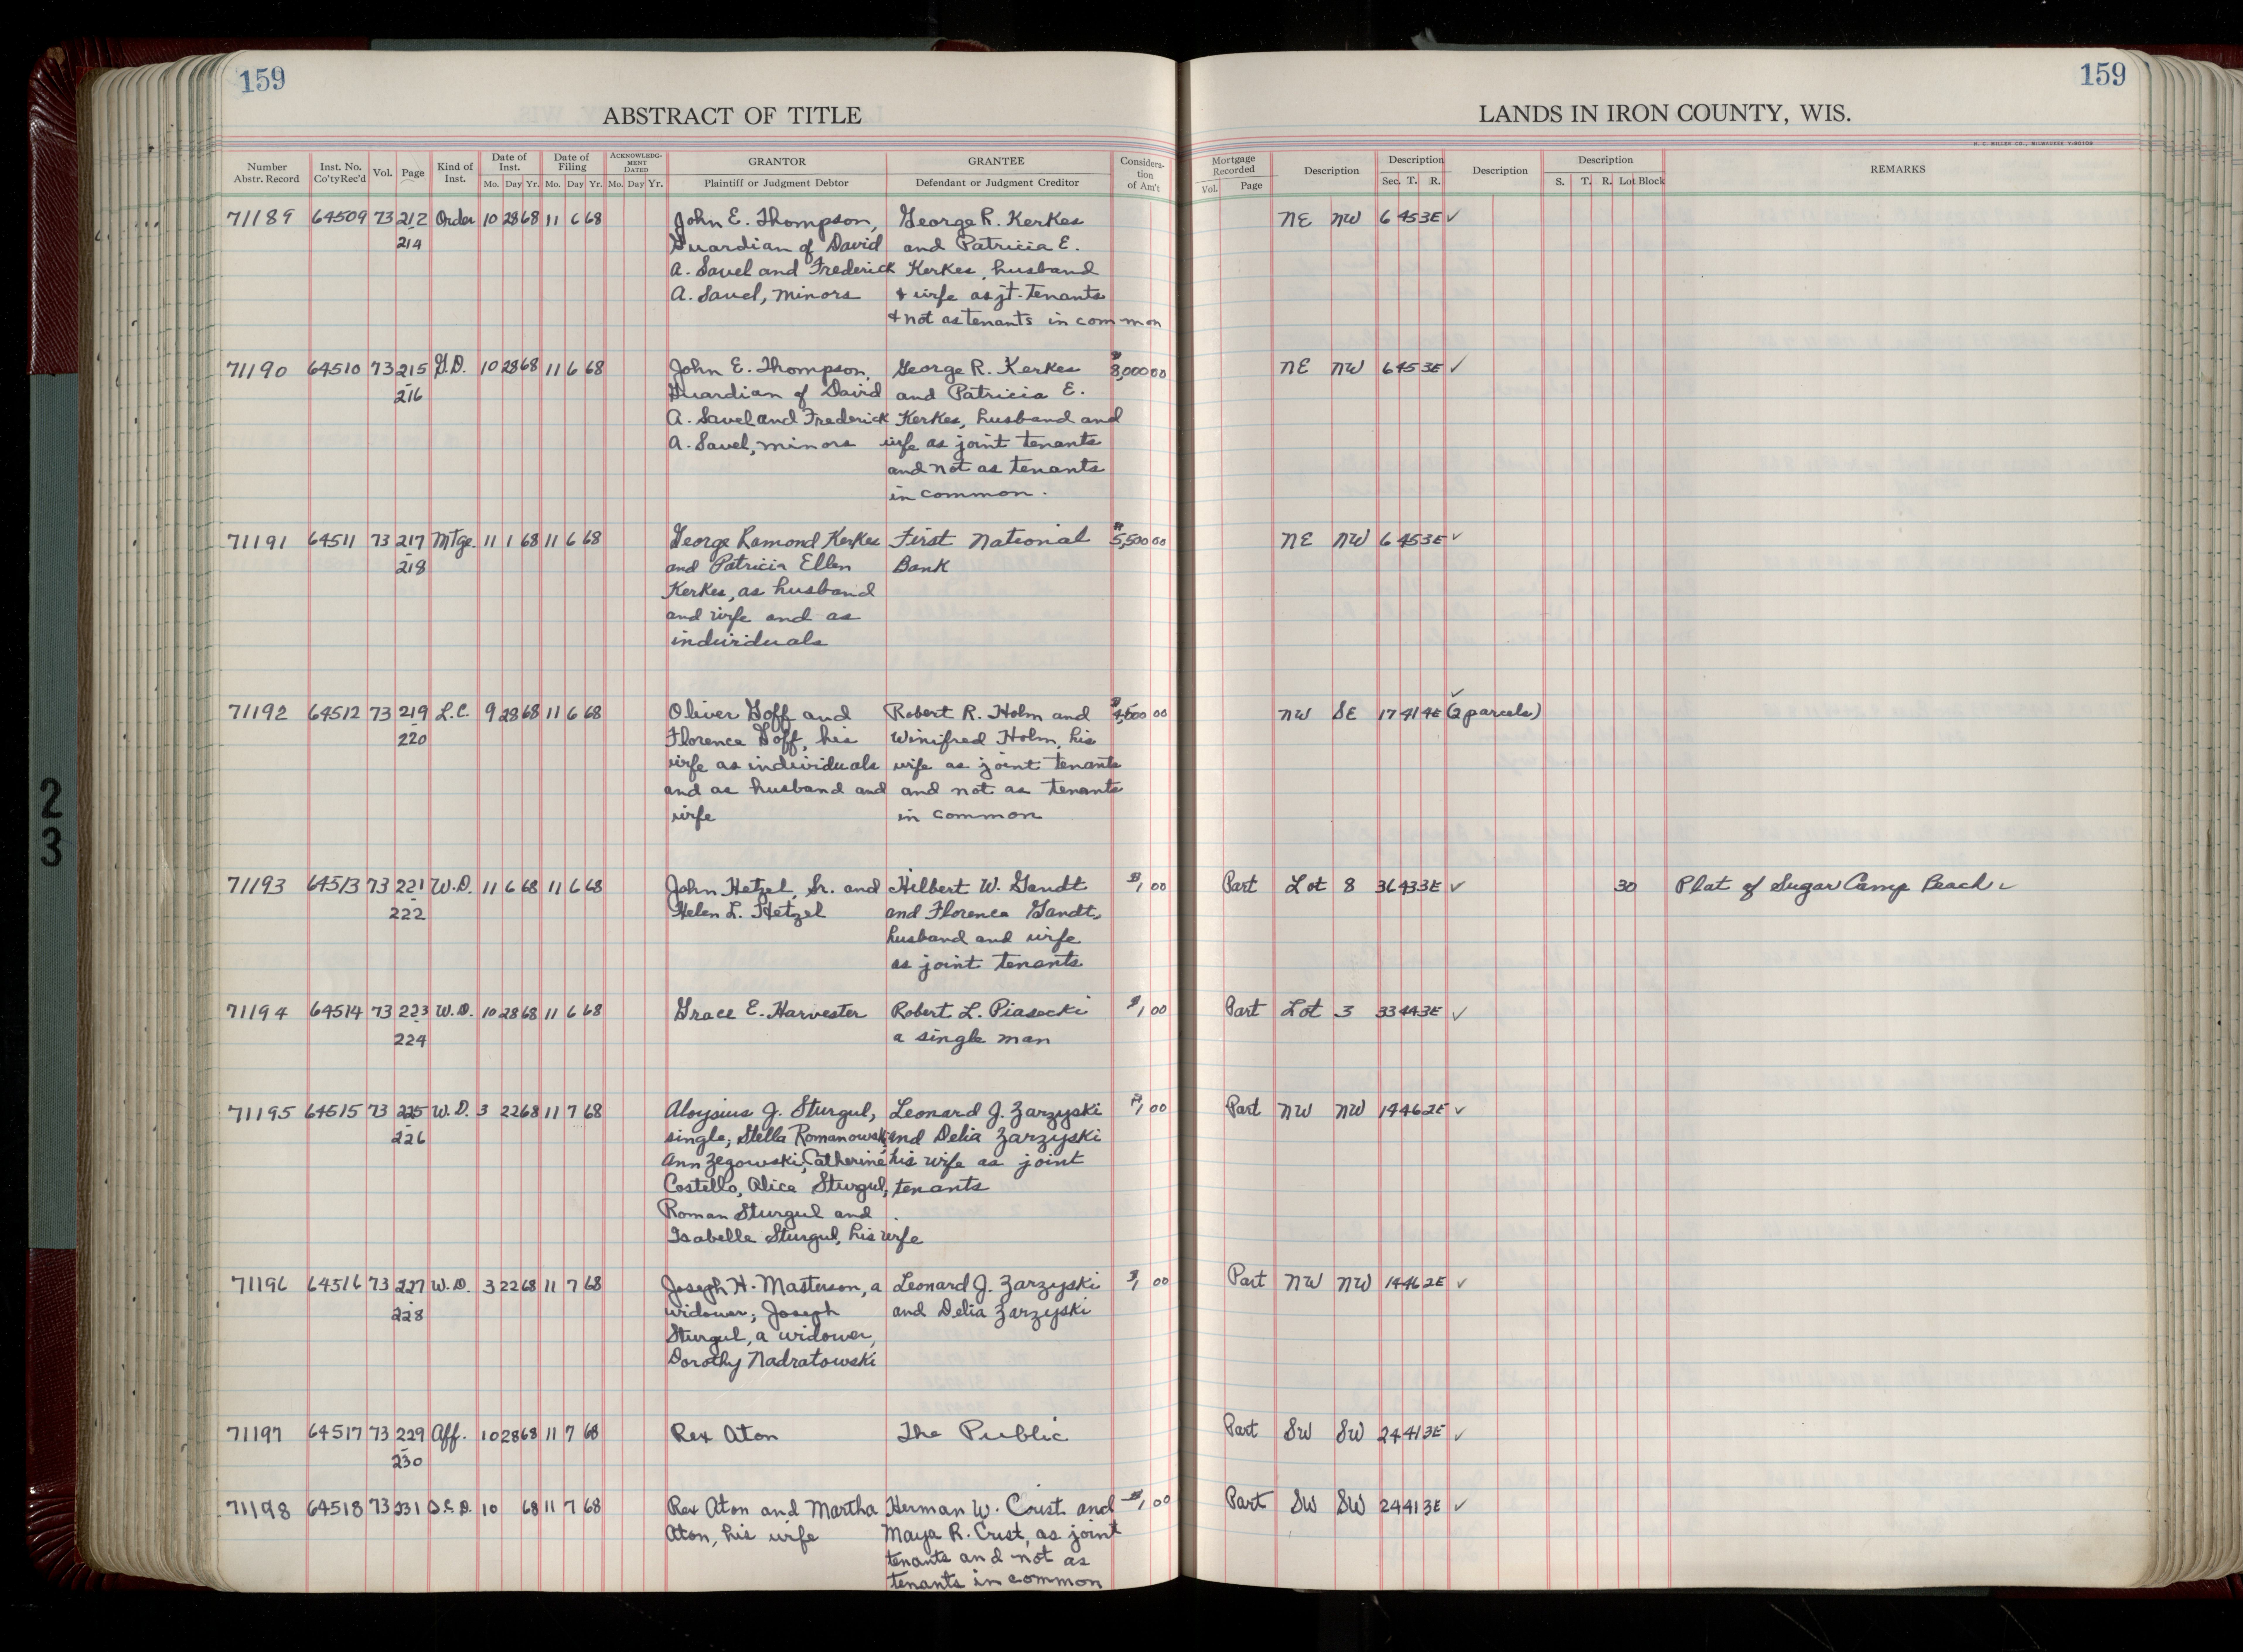 159
159
ABSTRACT OF TITLE
LANDS IN IRON COUNTY, WIS.
H. C. MILLER CO., MILWAUKEE
Number Abstr. Record
Inst. No. Co'ty Rec'd
Vol.
Page
Kind of Inst.
Date of Inst.
Mo. Day Yr.
Date of Filing
Mo. Day Yr.
ACKNOWLEDGMENT DATED
Mo. Day Yr.
GRANTOR
Plaintiff or Judgment Debtor
GRANTEE
Defendant or Judgment Creditor
Consideration of Am't
Mortgage Recorded
Vol. Page
Description
Description
Sec. T. R.
Description
Description
S. T. R. Lot Block
REMARKS
71189 64509 73 212 Order 10 28 68 11 6 68 John E. Thompson, George R. Kerkes NE NW 6 45 3E ✓
214 Guardian of David and Patricia E.
A. Savel and Frederick Kerkes, husband
A. Savel, minors & wife as jt. tenants
& not as tenants in common
71190 64510 73 215 G.D. 10 28 68 11 6 68 John E. Thompson, George R. Kerkes $8,000 00 NE NW 6 45 3E ✓
216 Guardian of David and Patricia E.
A. Savel and Frederick Kerkes, husband and
A. Savel, minors wife as joint tenants
and not as tenants
in common.
71191 64511 73 217 Mtge. 11 1 68 11 6 68 George Ramond Kerkes First National $5,500 00 NE NW 6 45 3E ✓
218 and Patricia Ellen Bank
Kerkes, as husband
and wife and as
individuals
71192 64512 73 219 L.C. 9 28 68 11 6 68 Oliver Goff and Robert R. Holm and 00 NW SE 17 41 4E (2 parcels) ✓
220 Florence Goff, his Winifred Holm, his
wife as individuals wife as joint tenants
and as husband and and not as tenants
wife in common
71193 64513 73 221 W.D. 11 6 68 11 6 68 John Hetzel, Sr. and Hilbert W. Gandt $1 00 Part Lot 8 36 43 3E ✓ 30 Plat of Sugar Camp Beach ✓
222 Helen L. Hetzel and Florence Gandt,
husband and wife
as joint tenants
71194 64514 73 223 W.D. 10 28 68 11 6 68 Grace E. Harvester Robert L. Piasecki $1 00 Part Lot 3 33 44 3E ✓
224 a single man
71195 64515 73 225 W.D. 3 22 68 11 7 68 Aloysius J. Sturgul, Leonard J. Zarzyski $1 00 Part NW NW 14 46 2E ✓
226 single; Stella Romanowski, and Delia Zarzyski
Ann Zegowski, Catherine his wife as joint
Costello, Alice Sturgul, tenants
Roman Sturgul and
Isabelle Sturgul, his wife
71196 64516 73 227 W.D. 3 22 68 11 7 68 Joseph H. Masterson, a Leonard J. Zarzyski $1 00 Part NW NW 14 46 2E ✓
228 widower; Joseph and Delia Zarzyski
Sturgul, a widower,
Dorothy Nadratowski
71197 64517 73 229 Aff. 10 28 68 11 7 68 Rex Aton The Public Part SW SW 24 41 3E ✓
230
71198 64518 73 231 Q.C.D. 10 68 11 7 68 Rex Aton and Martha Herman W. Crist and $1 00 Part SW SW 24 41 3E ✓
Aton, his wife Maya R. Crist, as joint
tenants and not as
tenants in common
2
3